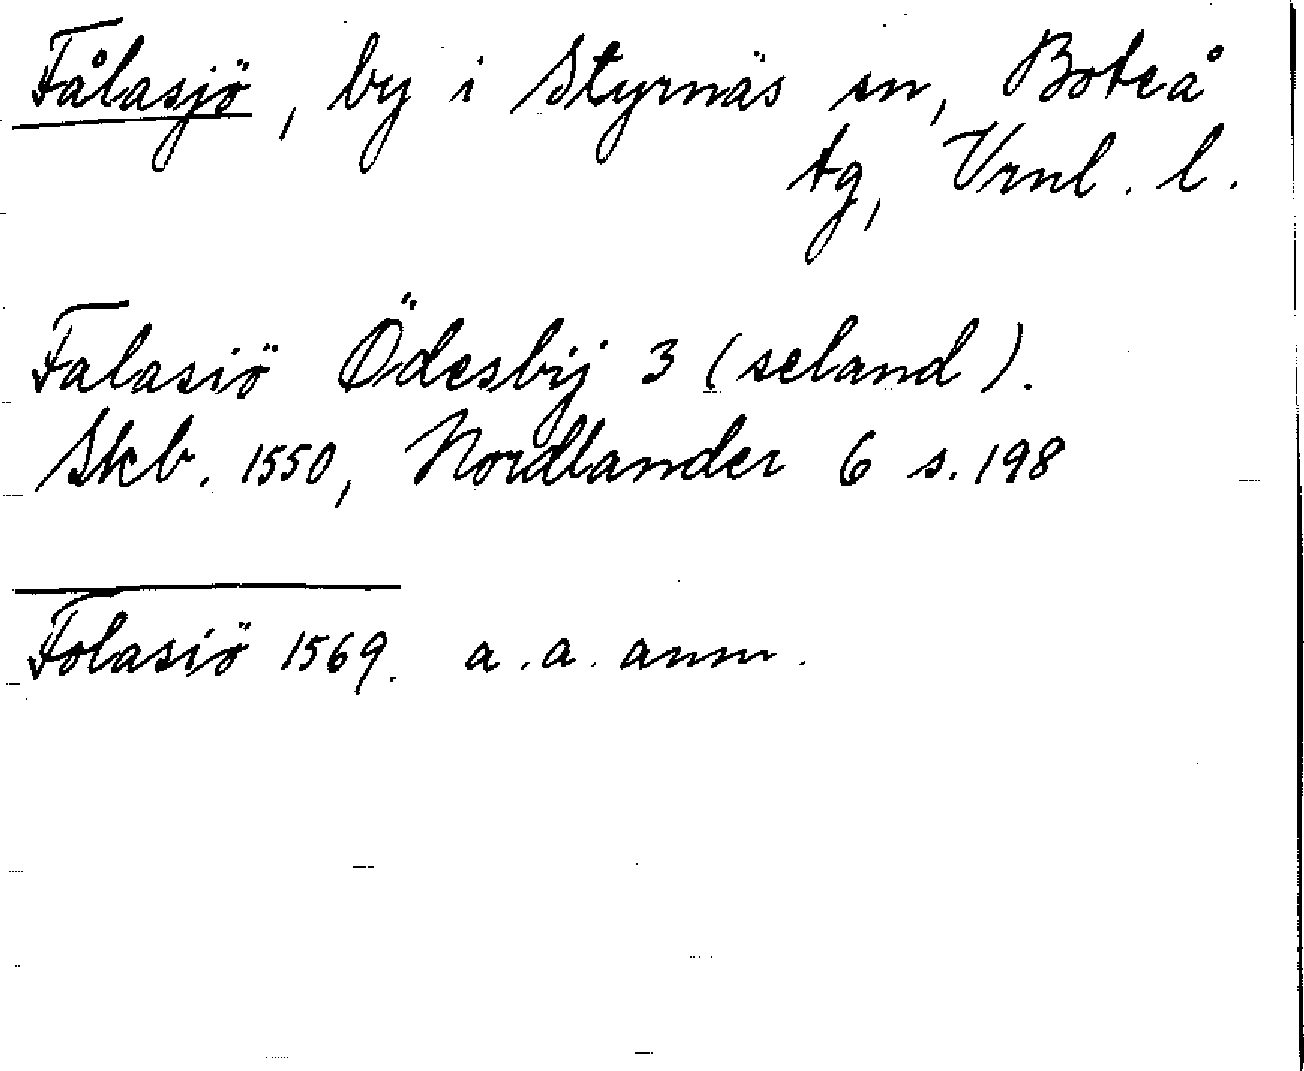 Fålasjö, by i Styrnäs sn, Boteå
tg, Vrnl. l.
Falasiö Ödesbij 3 (seland).
Skb. 1550, Nordlander 6 s. 198
Folasiö 1569. a. a. anm.